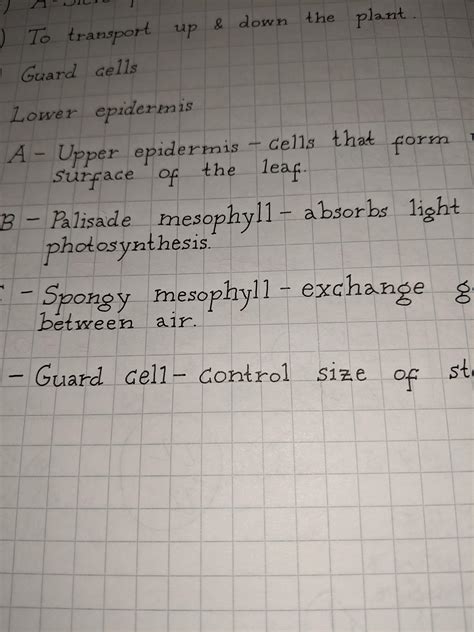 ) To transport up & down the plant.
Guard cells
Lower epidermis
A - Upper epidermis - cells that form
surface of the leaf.
B - Palisade mesophyll - absorbs light
photosynthesis.
- Spongy mesophyll - exchange g
between air.
- Guard cell - control size of st